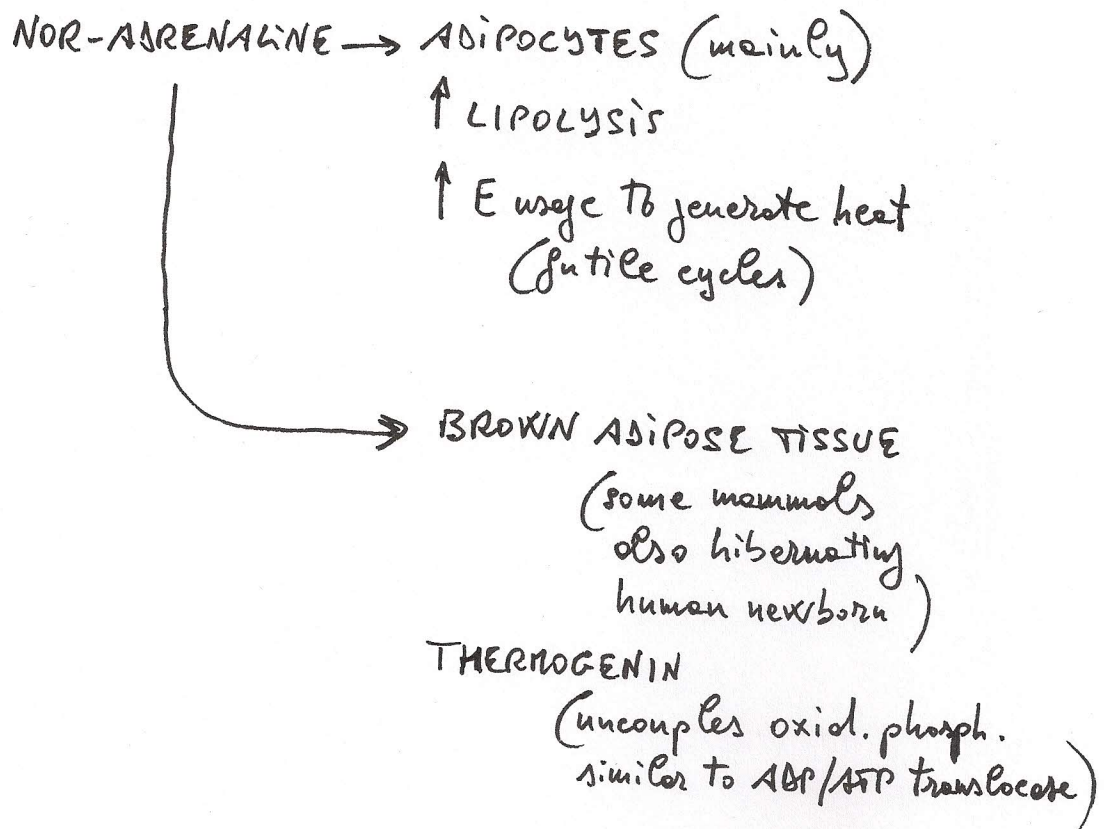 NOR-ADRENALINE → ADIPOCYTES (mainly)
↑ LIPOLYSIS
↑ E usage to generate heat
(futile cycles)
BROWN ADIPOSE TISSUE
(some mammals
also hibernating
human newborn)
THERMOGENIN
(uncouples oxid. phosph.
similar to ADP/ATP translocase)